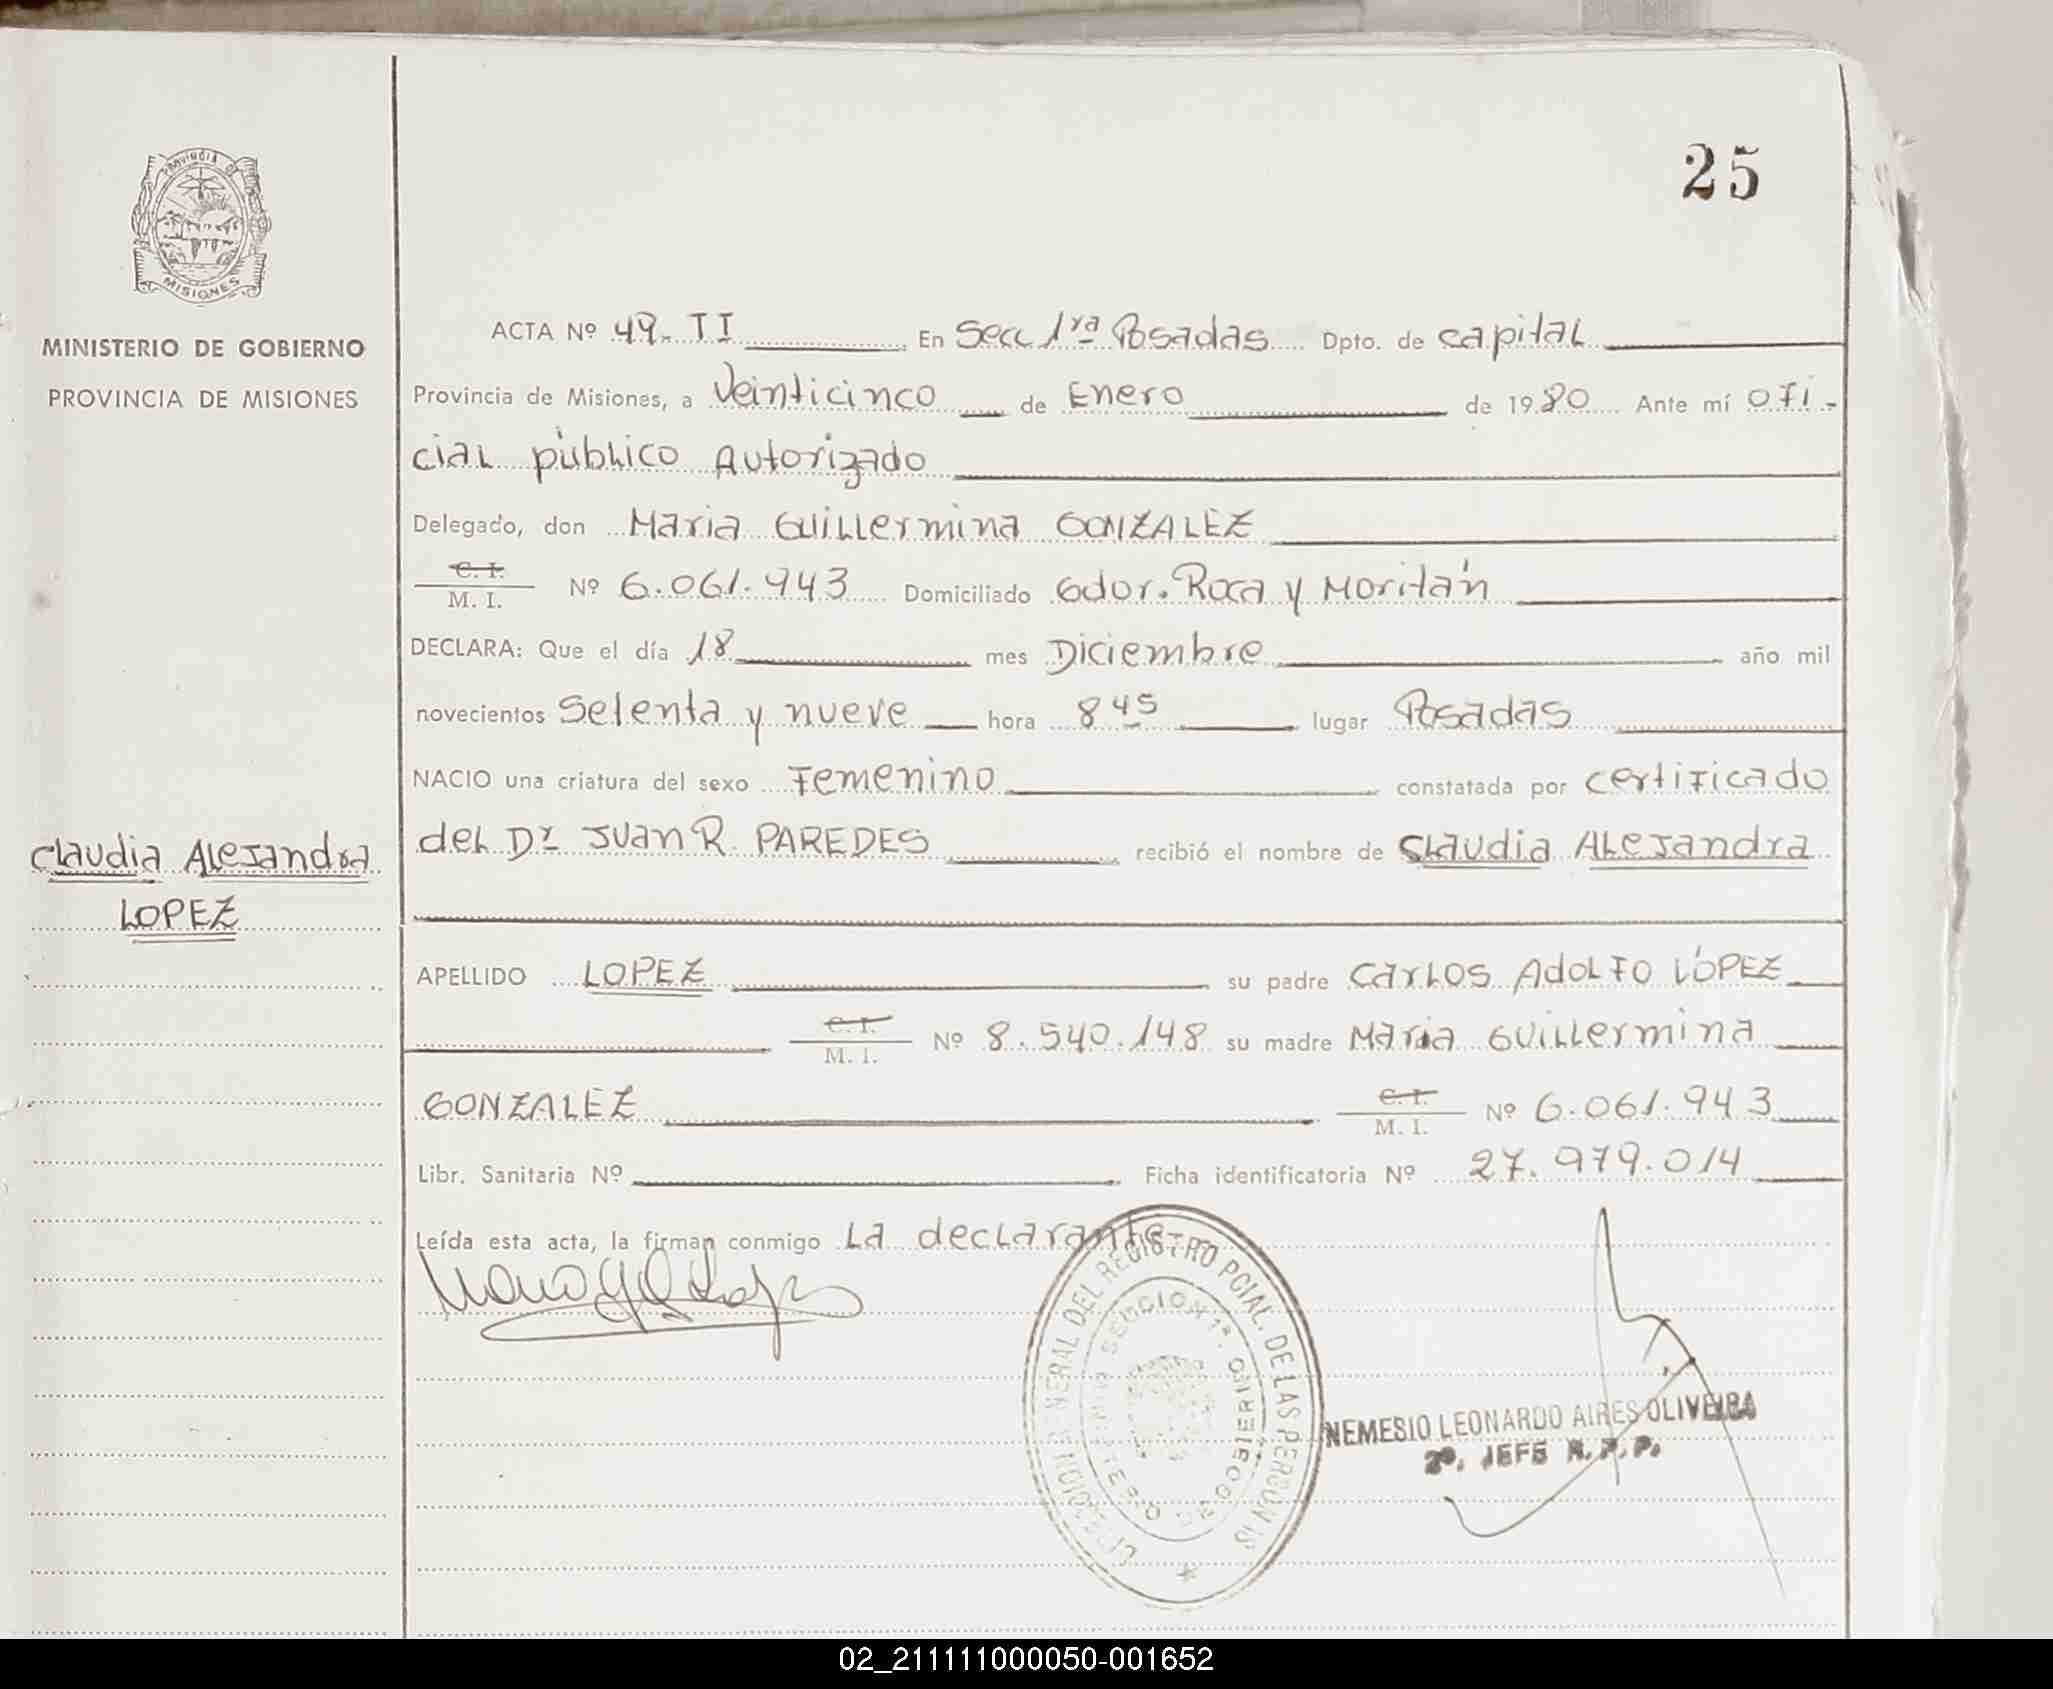 25
PROVINCIA DE
MISIONES
MINISTERIO DE GOBIERNO
PROVINCIA DE MISIONES
ACTA Nº 49. II En Secc 1ra Posadas Dpto. de Capital
Provincia de Misiones, a Veinticinco de Enero de 1980 Ante mí ofi-
cial público Autorizado
Delegado, don Maria Guillermina GONZALEZ
C. I.
M. I. Nº 6.061.943 Domiciliado Gdor. Roca y Moritán
DECLARA: Que el día 18 mes Diciembre año mil
novecientos Setenta y nueve hora 8 45 lugar Posadas
NACIO una criatura del sexo Femenino constatada por certificado
del Dr Juan R. PAREDES recibió el nombre de Claudia Alejandra
Claudia Alejandra
LOPEZ
APELLIDO LOPEZ su padre Carlos Adolfo LÓPEZ
C. I.
M. I. Nº 8.540.148 su madre Maria Guillermina
GONZALEZ C. I.
M. I. Nº 6.061.943
Libr. Sanitaria Nº Ficha identificatoria Nº 27.979.014
Leída esta acta, la firman conmigo La declarante
DIRECCION GENERAL DEL REGISTRO PCIAL. DE LAS PERSONAS
MINISTERIO DE GOBIERNO
SECCION 1ª.
NEMESIO LEONARDO AIRES OLIVEIRA
2º. JEFE R. P. P.
02_211111000050-001652